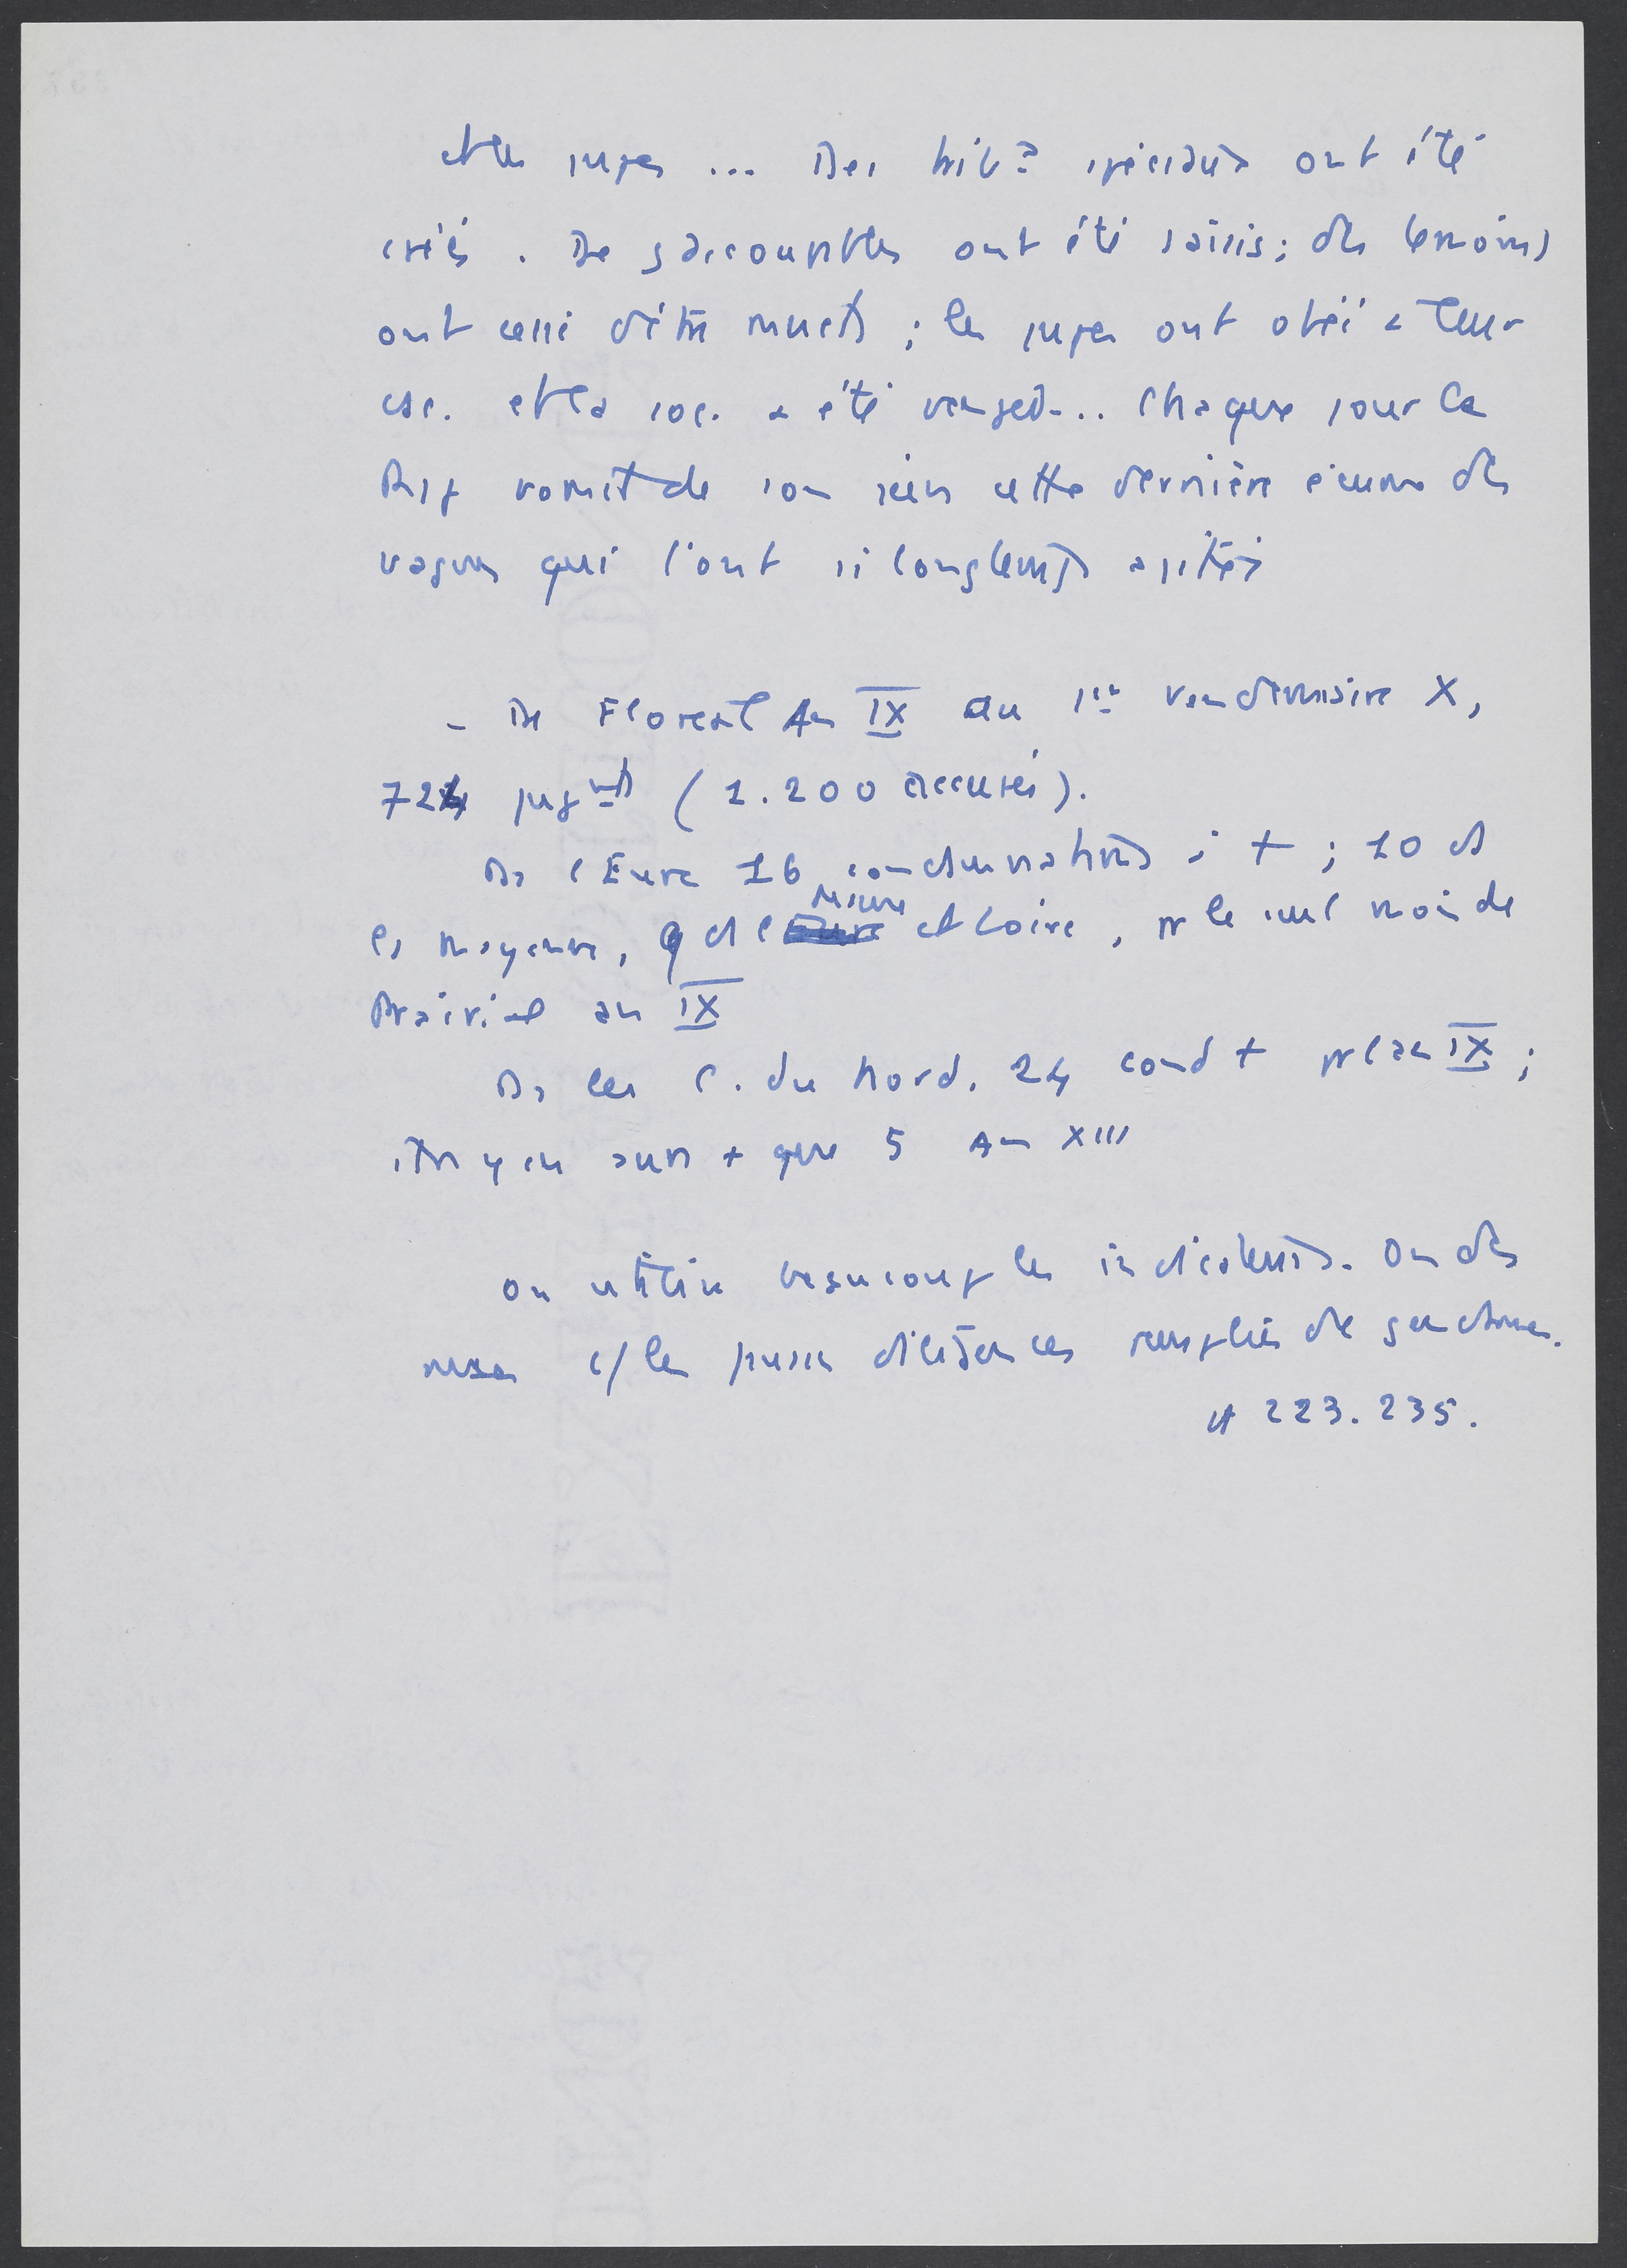 et les juges ... Des trib. spéciaux ont été
créés. De s coupables ont été saisis; des témoins
ont cessé d'être muets; les juges ont obéi à leur
csc. et la soc. a été vengée... Chaque jour la
Rép vomit de son sein cette dernière écume des
vagues qui l'ont si longtemps agitée
- De Floreal An IX au 1er vendémiaire X,
724 jugmts (1.200 accusés).
Ds l'Eure 16 condamnations à +; 10 ds
la Mayenne, 9 ds Maine et Loire, pr le seul mois de
Prairial an IX
Ds les C. du Nord. 24 cond + pr l'an IX;
il n'y en aura + que 5 An XIII
On utilise beaucoup les indicateurs. On des
ruses c/ les diligences remplies de gendarmes.
cf 223.235.